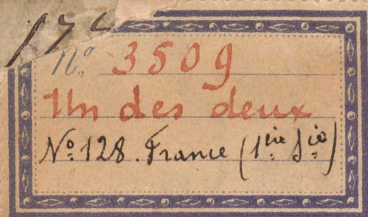 N° 3509
Un des deux
N° 128. France (1ère Sie)